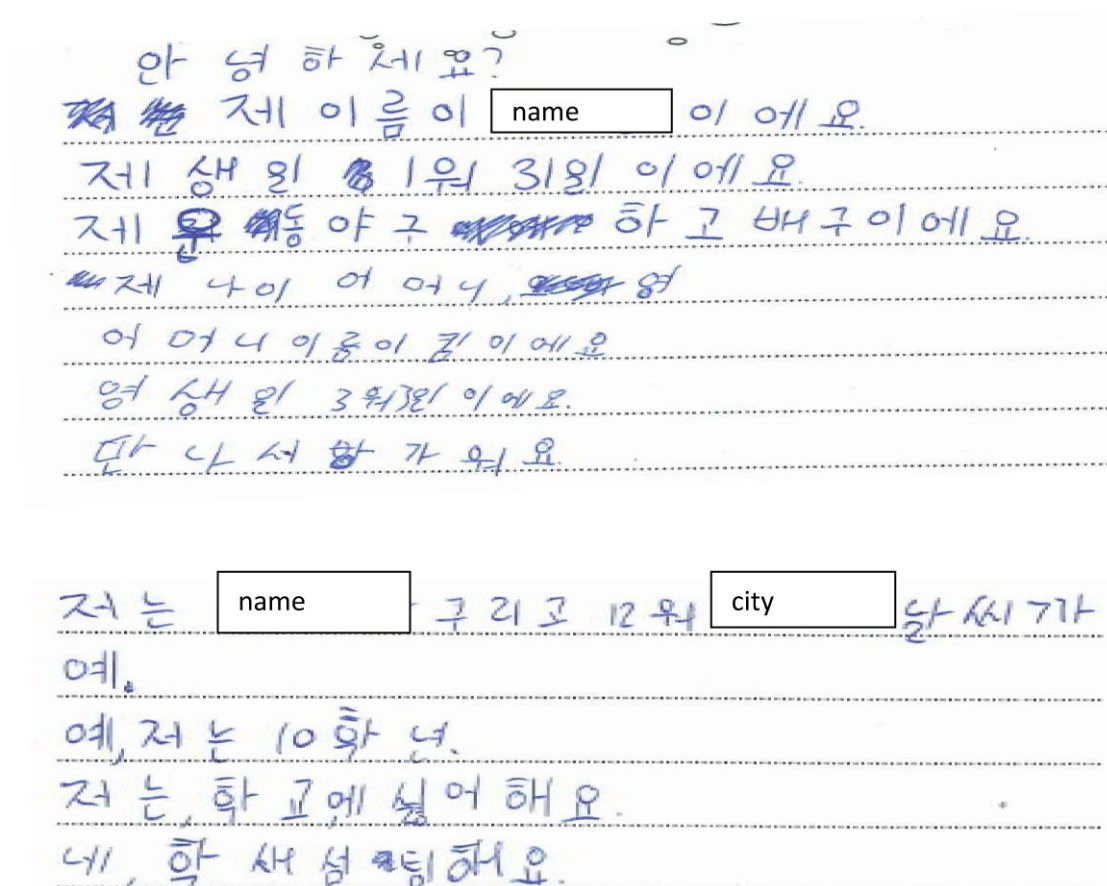 안 녕 하 세 요?
제 이 름 이 name 이 에 요.
제 생 일 1 워 31일 이 에 요.
제 운 동 야 구 하 고 배 구 이 에 요.
제 나 이 어 머 니, 영
어 머 니 이 름 이 킴 이 에 요
영 생 일 3 워3일 이 에 요.
만 나 서 가 워 요
저 는 name 구 리 고 12 워 city 날 씨 기가
예.
예, 저 는 10 학 년.
저 는, 학 교에 싫 어 해 요.
네, 학 새 섬 팅 해 요.